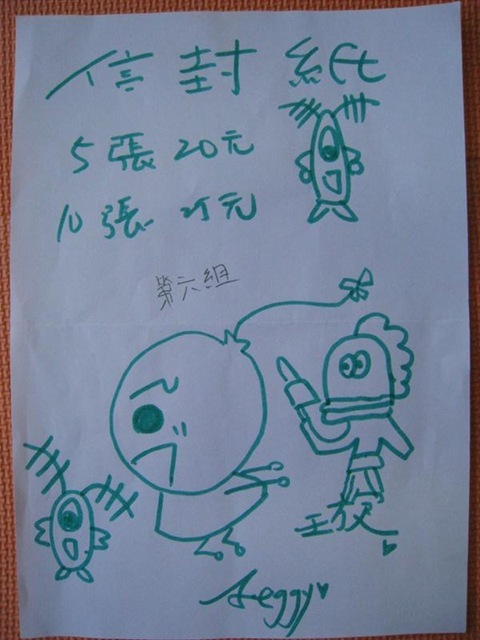 信封紙
5張 20元
10張 25元
第六組